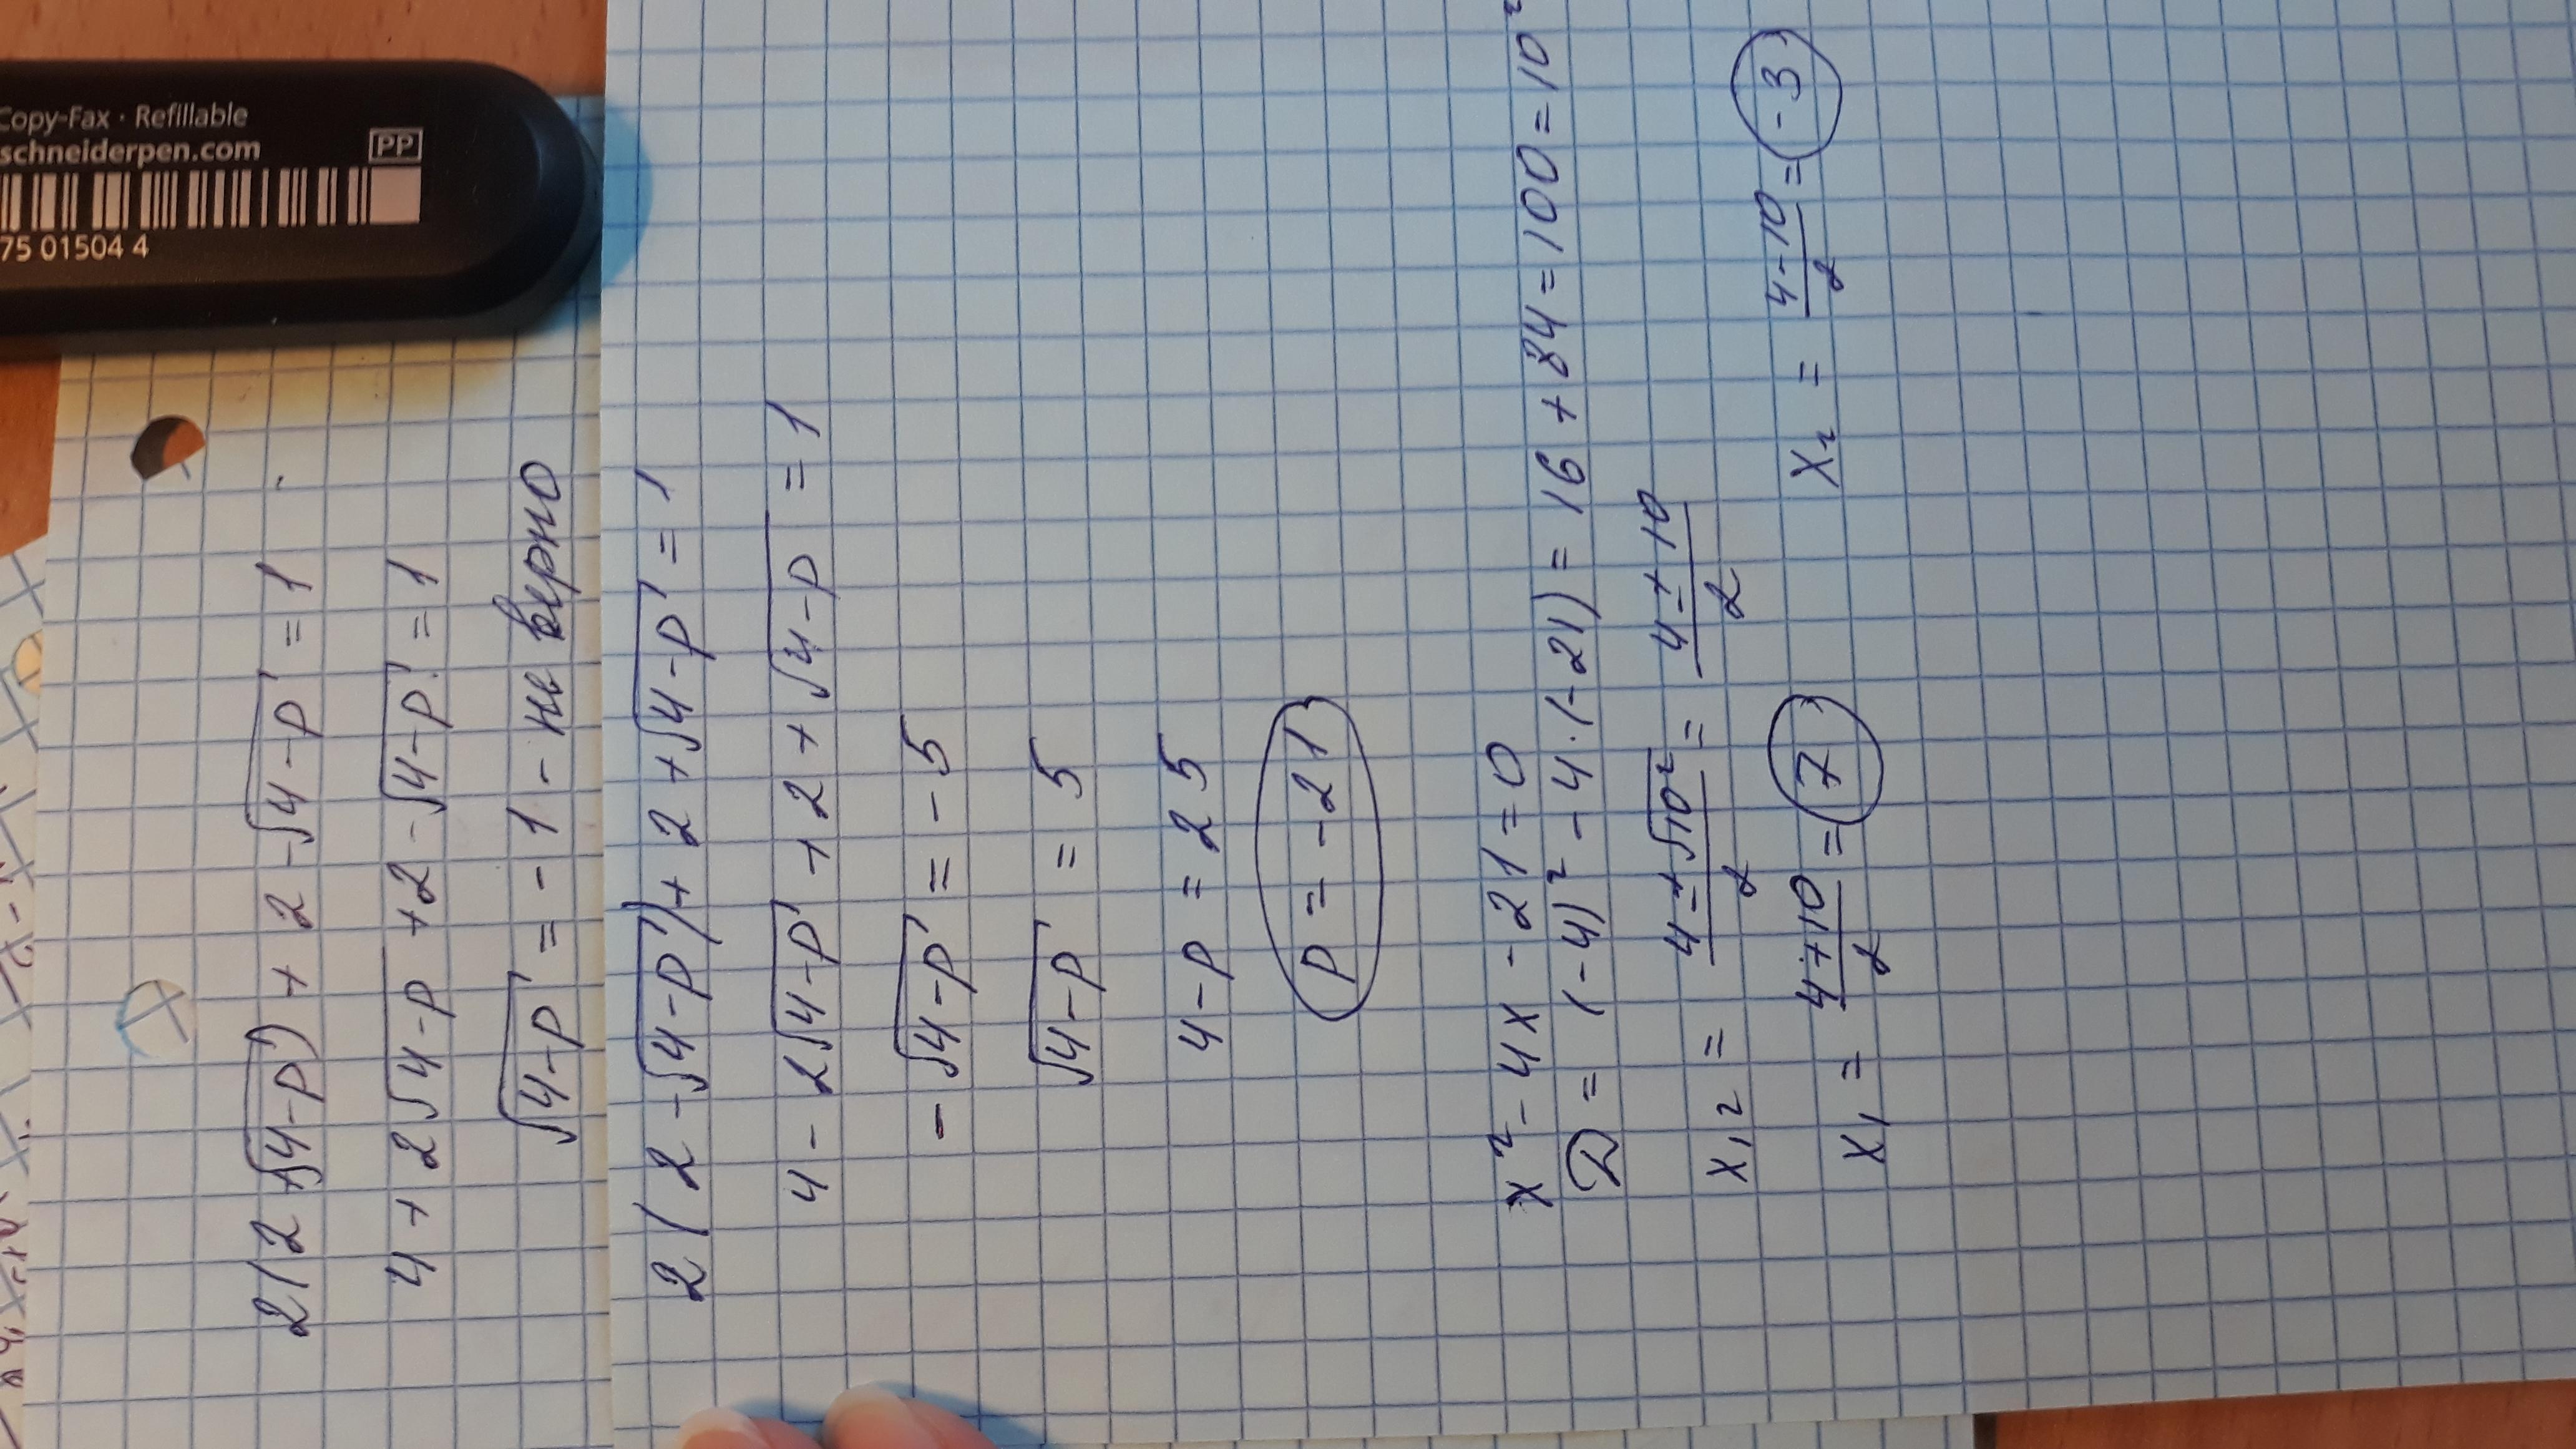 Copy-Fax · Refillable
schneiderpen.com PP
75 01504 4
2(2+√4-p) + 2 -√4-p = 1
4 + 2√4-p +2-√4-p = 1
√4-p = -1 - не верно
2(2-√4-p)+ 2+√4-p = 1
4 - 2√4-p + 2 + √4-p = 1
- √4-p = -5
√4-p = 5
4-p = 25
p = -21
x² - 4x - 21 = 0
D = (-4)² - 4·(-21) = 16 + 84 = 100 = 10²
x₁,₂ = (4±√10²)/2 = (4±10)/2
x₁ = (4+10)/2 = 7 x₂ = (4-10)/2 = -3